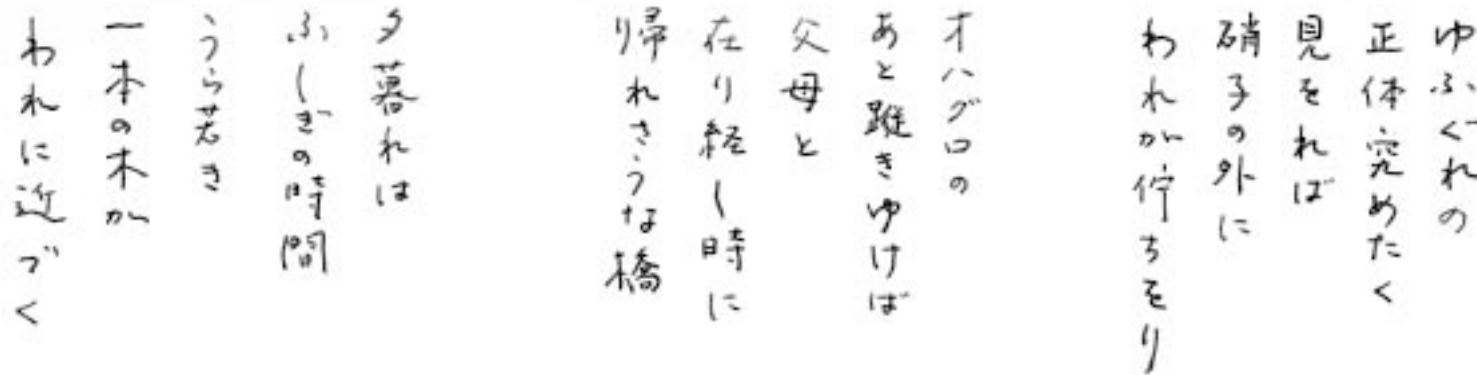 ゆふぐれの
正体究めたく
見をれば
硝子の外に
われが佇ちをり
オハグロの
あと蹤きゆけば
父母と
在り経し時に
帰れさうな橋
夕暮れは
ふしぎの時間
うら若き
一本の木が
われに近づく